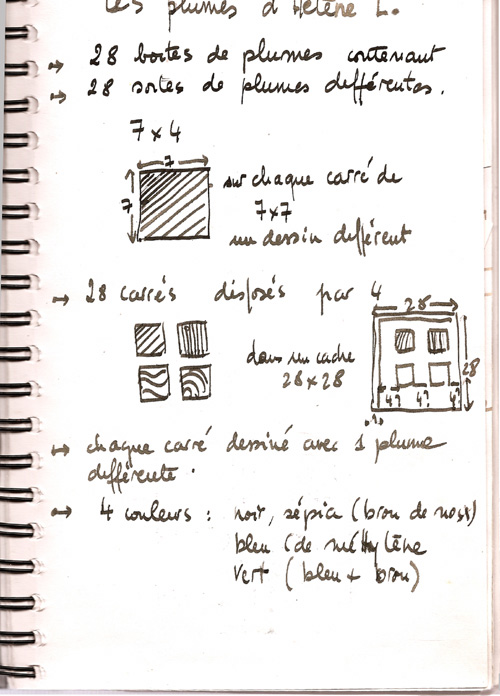 Les plumes d'Hélène L.
→ 28 boîtes de plumes contenant
→ 28 sortes de plumes différentes.
7 x 4
7
7
sur chaque carré de
7x7
un dessin différent
→ 28 carrés disposés par 4
28
dans un cache
28x28
28
4? 4? 4?
→ chaque carré dessiné avec 1 plume
différente.
→ 4 couleurs : noir, sépia (brou de noix)
bleu (de méthylène
vert (bleu + brou)